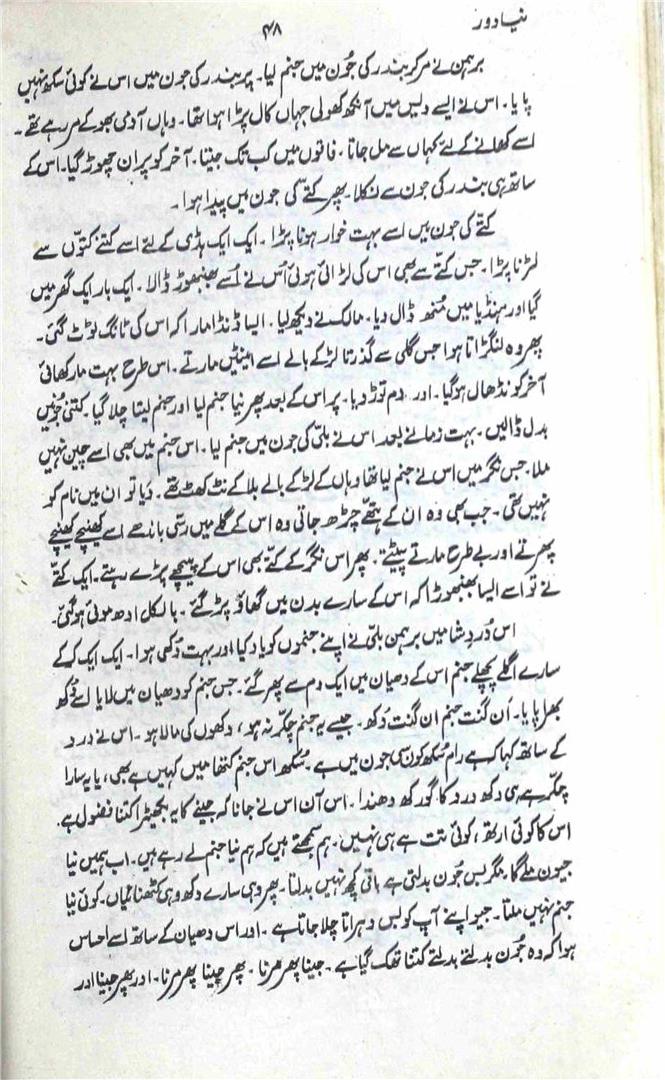 نیا دور
۴۸
برہمن نے مر کر بندر کی جُون میں جنم لیا۔ پر بندر کی جون میں اس نے کوئی سکھ نہیں
پایا۔ اس نے ایسے دیس میں آنکھ کھولی جہاں کال پڑا ہوا تھا۔ وہاں آدمی بھوکے مر رہے تھے۔
اسے کھانے کے لئے کہاں سے مل جاتا۔ فاقوں میں کب تک جیتا۔ آخر کو پران چھوڑ گیا۔ اس کے
ساتھ ہی بندر کی جون سے نکلا۔ پھر کتّے کی جون میں پیدا ہوا۔
کتّے کی جون میں اسے بہت خوار ہونا پڑا۔ ایک ایک ہڈی کے لئے اسے کتنے کتوں سے
لڑنا پڑا۔ جس کتّے سے بھی اس کی لڑائی ہوئی اُس نے اُسے بھنبھوڑ ڈالا۔ ایک بار ایک گھر میں
گیا اور ہنڈیا میں مُنھ ڈال دیا۔ مالک نے دیکھ لیا۔ ایسا ڈنڈا مارا کہ اس کی ٹانگ ٹوٹ گئی۔
پھر وہ لنگڑاتا ہوا جس گلی سے گذرتا لڑکے بالے اسے اینٹیں مارتے۔ اس طرح بہت مار کھائی
آخر کو نڈھال ہوگیا۔ اور دم توڑ دیا۔ پر اس کے بعد پھر نیا جنم لیا اور جنم لیتا چلا گیا۔ کتنی جُونیں
بدل ڈالیں۔ بہت زمانے بعد اس نے بلّی کی جون میں جنم لیا۔ اس جنم میں بھی اسے چین نہیں
ملا۔ جس نگر میں اس نے جنم لیا تھا وہاں کے لڑکے بالے بلا کے نٹ کھٹ تھے۔ دَیا تو ان میں نام کو
نہیں تھی۔ جب بھی وہ ان کے ہتھے چڑھ جاتی وہ اس کے گلے میں رسّی باندھے اسے کھنچے کھنچے
پھرتے اور بے طرح مارتے پیٹتے۔ پھر اس نگر کے کتّے بھی اس کے پیچھے پڑے رہتے۔ ایک کتّے
نے تو اسے ایسا بھنبھوڑا کہ اس کے سارے بدن میں گھاؤ پڑ گئے۔ بالکل ادھ موئی ہوگئی۔
اس دُردشا میں برہمن بلّی نے اپنے جنموں کو یاد کیا اور بہت دُکھی ہوا۔ ایک ایک کر کے
سارے اگلے پچھلے جنم اس کے دھیان میں ایک دم سے پھر گئے۔ جس جنم کو دھیان میں لایا اسے دُکھ
بھرا پایا۔ اَن گنت جنم ان گنت دُکھ۔ جیسے یہ جنم چکّر نہ ہو، دکھوں کی مالا ہو۔ اس نے درد
کے ساتھ کہا کہ ہے رام سُکھ کون سی جون میں ہے۔ سُکھ اس جنم کتھا میں کہیں ہے بھی، یا یہ سارا
چکّر ہے ہی دکھ درد کا گورکھ دھندا۔ اس آن اس نے جانا کہ جینے کا یہ بکھیڑا کتنا فضول ہے۔
اس کا کوئی ارتھ، کوئی تت ہے ہی نہیں۔ ہم سمجھتے ہیں کہ ہم نیا جنم لے رہے ہیں۔ اب ہمیں نیا
جیون ملے گا۔ مگر بس جُون بدلتی ہے باقی کچھ نہیں بدلتا۔ پھر وہی سارے دکھ وہی کٹھنائیاں۔ کوئی نیا
جنم نہیں ملتا۔ جیو اپنے آپ کو بس دہراتا چلا جاتا ہے۔ اور اس دھیان کے ساتھ اسے احساس
ہوا کہ وہ جُون بدلتے بدلتے کتنا تھک گیا ہے۔ جینا پھر مرنا۔ پھر جینا پھر مرنا۔ اور پھر جینا اور